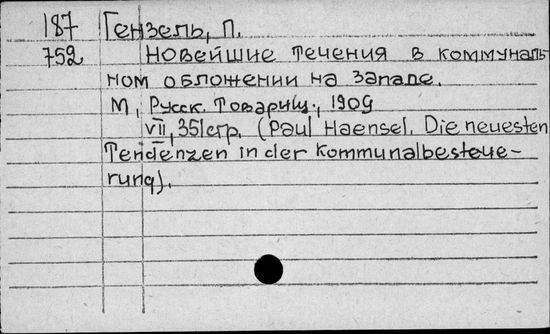 187 Гензель, П.
752 Новейшие течения в коммуналь
ном обложении на Западе.
М, Русск. Товарищ., 1909
VII, 351стр. (Paul Haensel. Die neuesten
Tendenzen in der Kommunalbesteue-
rung).